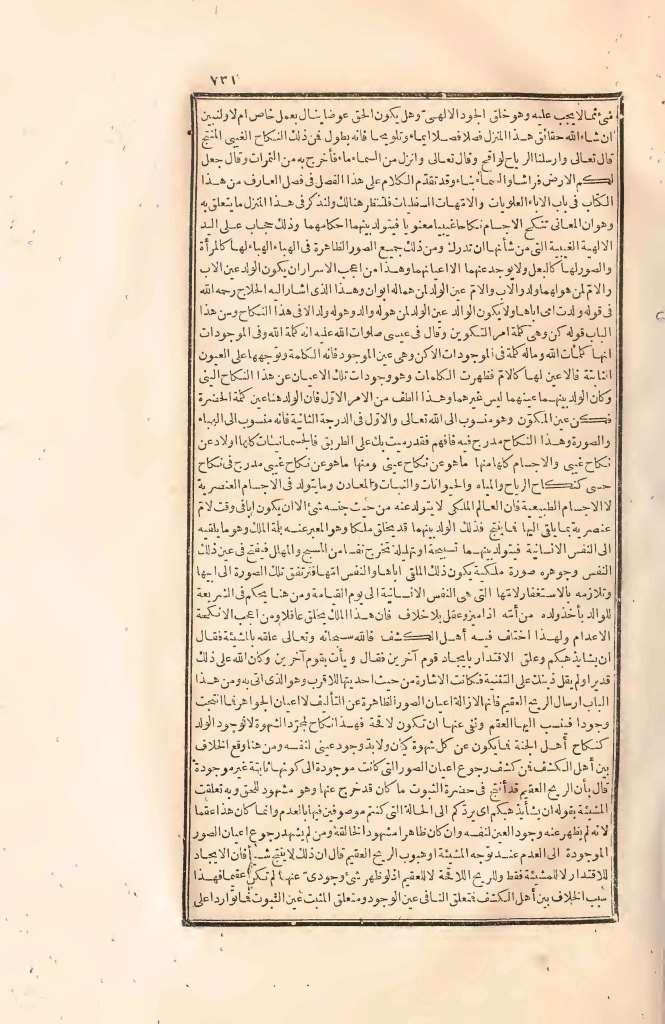 ٧٣١
شئ ثما لا يجب عليه وهو خلق الجود الالهىّ وهل يكون الحق عوضا ينال بعمل خاص ام لا ولنبين
ان شاء الله حقائق هذا المنزل فصلا فصلا ايماء وتلويحا فانه يطول فمن ذلك النكاح الغيبى المنتج
قال تعالى وارسلنا الرياح لواقح وقال تعالى وانزل من السماء ماء فأخرج به من الثمرات وقال جعل
لكم الارض فراشا والسماء بناء وقد تقدّم الكلام على هذا الفصل فى فصل المعارف من هذا
الكتاب فى باب الاباء العلويات والاتمهات السفليات فلتنظر هنالك ولنذكر فى هذا المنزل ما يتعلق به
وهو ان المعانى تنكح الاجسام نكاحا غيبيا معنويا فيتولد بينهما احكامهما وذلك حجاب على اليد
الالهية الغيبية التى من شأنها ان تدرك ومن ذلك جميع الصور الظاهرة فى الهباء الهباء لها كالمرأة
والصور لها كالبعل ولا يوجد عنهما الا اعيانهما وهذا من اعجب الاسرار ان يكون الولد عين الاب
والامّ لمن هو لهما ولد والاب والامّ عين الولد لمن هما له ابوان وهذا الذى اشار اليه الحلاج رحمه الله
فى قوله ولدت امى اباها ولا يكون الوالد عين الولد لمن هو له والد وهو له ولد الا فى هذا النكاح ومن هذا
الباب قوله كن وهى كلمة امر التكوين وقال فى عيسى صلوات الله عليه انه كلمة الله وفى الموجودات
انها كلمات الله وماله كلمة فى الموجودات الا كن وهى عين الموجود فانه الكلمة وتوجهها على العيون
الثابتة فالاعين لها كالامّ فظهرت الكلمات وهو وجودات تلك الاعيان عن هذا النكاح الغيبى
وكان الولد بينهما عينهما ليس غيرهما وهذا الطف من الامر الاوّل فان الولد هنا عين كلمة الحضرة
فكن عين المكوّن وهو منسوب الى الله تعالى والاوّل فى الدرجة الثانية فانه منسوب الى الهباء
والصورة وهذا النكاح مدرج فيه فافهم فقد رميت بك على الطريق فالجسمانيات كلها اولاد عن
نكاح غيبى والاجسام كلها منها ما هو عن نكاح غيبى ومنها ما هو عن نكاح غيبى مدرج فى نكاح
حسى كنكاح الرياح والمياه والحيوانات والنبات والمعادن وما يتولد فى الاجسام العنصرية
لا الاجسام الطبيعية فان العالم الملكى لا يتولد عنه من حيث جنسه شئ الا ان يكون ابا فى وقت لامّ
عنصرية بما يلقى اليها فما ينتج فذلك الولد بينهما قد يخلق ملكا وهو المعبر عنه بلمة الملك وهو ما يلقيه
الى النفس الانسانية فيتولد بينهما تسبيحة او تهليلة تخرج نفسا من المسبح والمهلل فينفتح فى عين ذلك
النفس وجوهره صورة ملكية يكون ذلك الملقى اباها والنفس امّها فترتفق تلك الصورة الى ابيها
وتلازمه بالاستغفار لامّها التى هى النفس الانسانية الى يوم القيامة ومن هنا يحكم فى الشريعة
للوالد بأخذ ولده من أمّه اذا ميز وعقل بلا خلاف فان هذا الملك يخلق عاقلا ومن اعجب الانكحة
الاعدام ولهذا اختلف فيه أهل الكشف فالله سبحانه وتعالى علقه بالمشيئة فقال
ان يشأ يذهبكم وعلق الاقتدار بايجاد قوم آخرين فقال ويأت بقوم آخرين وكان الله على ذلك
قديرا ولم يقل ذينك على التثنية فكانت الاشارة من حيث احديتها للاقرب وهو الذى اتى به ومن هذا
الباب ارسال الريح العقيم فانها لازالة اعيان الصور الظاهرة عن التأليف لا اعيان الجواهر فما انتجت
وجودا فنسب اليها العقم ونفى عنها ان تكون لاقحة فهذا نكاح لمجرّد الشهوة لا لوجود الولد
كنكاح أهل الجنة فما يكون عن كل شهوة كون ولا بدّ وجود عينى لنفسه ومن هنا وقع الخلاف
بين أهل الكشف فمن كشف رجوع اعيان الصور التى كانت موجودة الى كونها ثابتة غير موجودة
قال بأن الريح العقيم قد أنتج فى حضرة الثبوت ما كان قد خرج عنها وهو مشهود للحق وبه تعلقت
المشيئة بقوله ان يشأ يذهبكم اى يردّكم الى الحالة التى كنتم موصوفين فيها بالعدم وانما كان هذا عقما
لانه لم يظهر عنه وجود العين لنفسه وان كان ظاهرا مشهودا لخالقه ومن لم يشهد رجوع اعيان الصور
الموجودة الى العدم عند توجه المشيئة او هبوب الريح العقيم قال ان ذلك لا ينتج شيأ فان الايجاد
للاقتدار لا للمشيئة فقط وللريح اللاقحة لا للعقيم اذ لو ظهر شئ وجودىّ عنها لم تكن عقيما فهذا
سبب الخلاف بين أهل الكشف فتعلق النافى عين الوجود ومتعلق المثبت عين الثبوت فما توارد اعلى